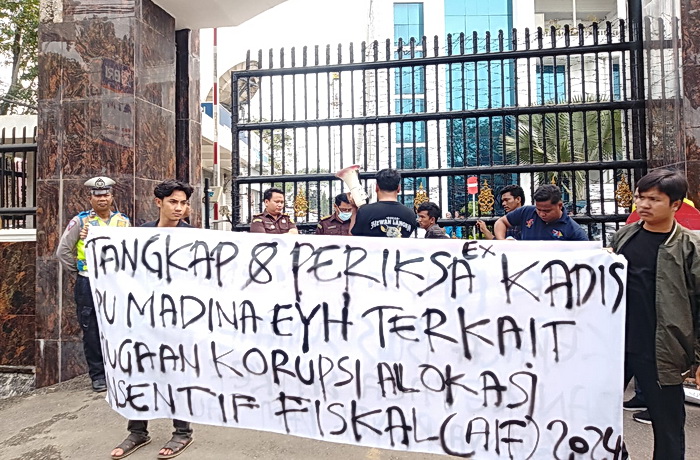 TANGKAP & PERIKSA EX KADIS
PU MADINA EYH TERKAIT
DUGAAN KORUPSI ALOKASI
INSENTIF FISKAL (AIF) 2024